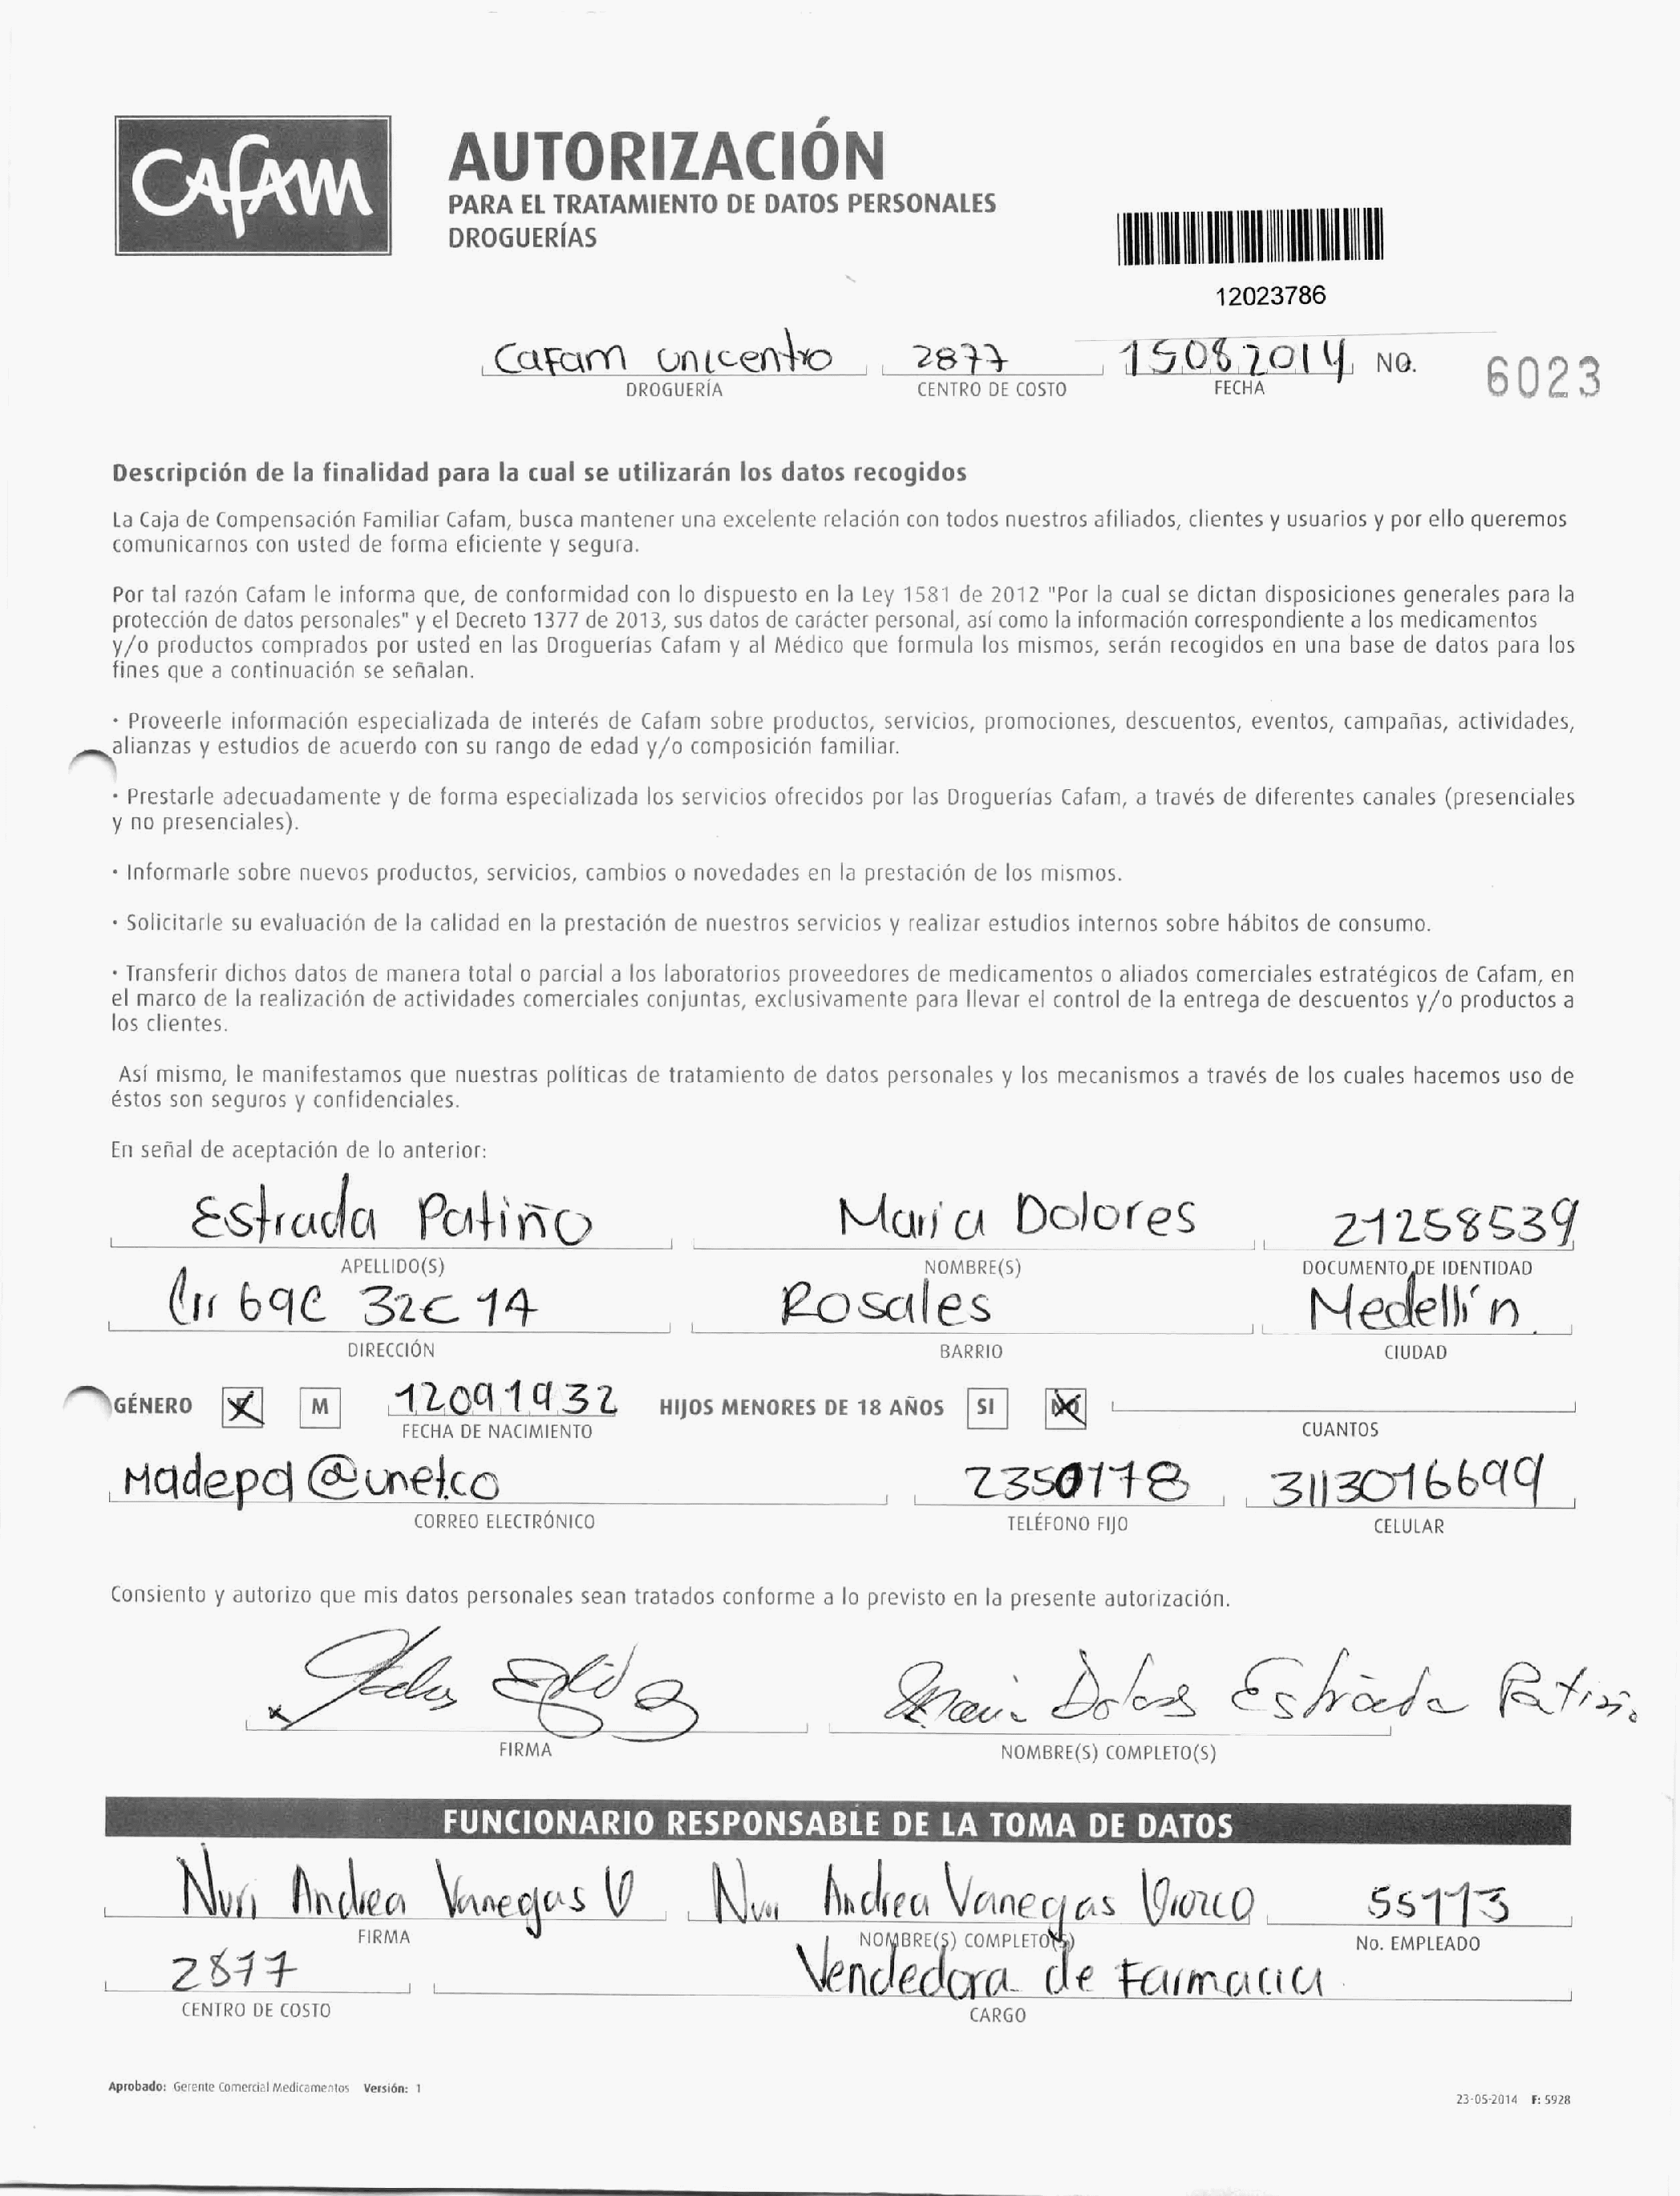 CAFAM
AUTORIZACIÓN
PARA EL TRATAMIENTO DE DATOS PERSONALES
DROGUERÍAS
12023786
Cafam unicentro 2877 15082014 NO. 6023
DROGUERÍA CENTRO DE COSTO FECHA
Descripción de la finalidad para la cual se utilizarán los datos recogidos
La Caja de Compensación Familiar Cafam, busca mantener una excelente relación con todos nuestros afiliados, clientes y usuarios y por ello queremos
comunicarnos con usted de forma eficiente y segura.
Por tal razón Cafam le informa que, de conformidad con lo dispuesto en la Ley 1581 de 2012 "Por la cual se dictan disposiciones generales para la
protección de datos personales" y el Decreto 1377 de 2013, sus datos de carácter personal, así como la información correspondiente a los medicamentos
y/o productos comprados por usted en las Droguerías Cafam y al Médico que formula los mismos, serán recogidos en una base de datos para los
fines que a continuación se señalan.
· Proveerle información especializada de interés de Cafam sobre productos, servicios, promociones, descuentos, eventos, campañas, actividades,
alianzas y estudios de acuerdo con su rango de edad y/o composición familiar.
· Prestarle adecuadamente y de forma especializada los servicios ofrecidos por las Droguerías Cafam, a través de diferentes canales (presenciales
y no presenciales).
· Informarle sobre nuevos productos, servicios, cambios o novedades en la prestación de los mismos.
· Solicitarle su evaluación de la calidad en la prestación de nuestros servicios y realizar estudios internos sobre hábitos de consumo.
· Transferir dichos datos de manera total o parcial a los laboratorios proveedores de medicamentos o aliados comerciales estratégicos de Cafam, en
el marco de la realización de actividades comerciales conjuntas, exclusivamente para llevar el control de la entrega de descuentos y/o productos a
los clientes.
Así mismo, le manifestamos que nuestras políticas de tratamiento de datos personales y los mecanismos a través de los cuales hacemos uso de
éstos son seguros y confidenciales.
En señal de aceptación de lo anterior:
Estrada Patiño Maria Dolores 21258539
APELLIDO(S) NOMBRE(S) DOCUMENTO DE IDENTIDAD
Crr 69C 32C 14 Rosales Medellín
DIRECCIÓN BARRIO CIUDAD
GÉNERO X M 12091932 HIJOS MENORES DE 18 AÑOS SI NO
FECHA DE NACIMIENTO CUANTOS
Madepa@unet.co 2350178 3113016699
CORREO ELECTRÓNICO TELÉFONO FIJO CELULAR
Consiento y autorizo que mis datos personales sean tratados conforme a lo previsto en la presente autorización.
Maria Dolores Estrada Patiño
FIRMA NOMBRE(S) COMPLETO(S)
FUNCIONARIO RESPONSABLE DE LA TOMA DE DATOS
Nuri Andrea Vanegas Nuri Andrea Vanegas 55113
FIRMA NOMBRE(S) COMPLETO(S) No. EMPLEADO
2877 Vendedora de Farmacia
CENTRO DE COSTO CARGO
Aprobado: Gerente Comercial Medicamentos Versión: 1
23-05-2014 F: 5928